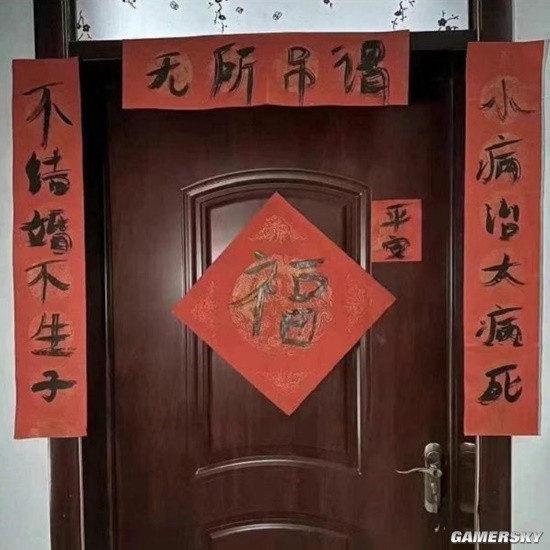 无所吊谓
小病治大病死
不结婚不生子
福
平安
GAMERSKY